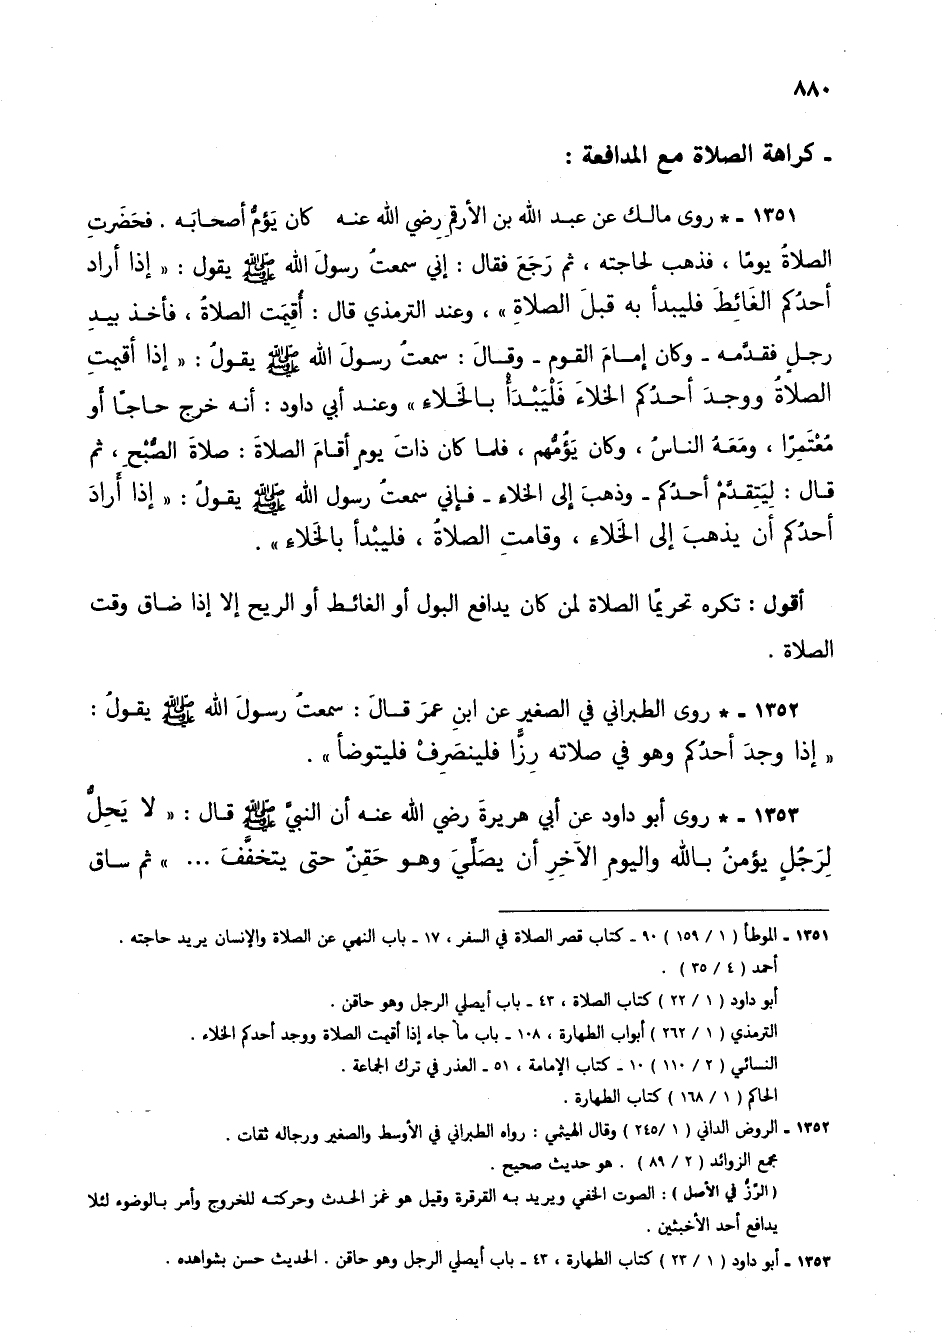 ٨٨٠
ـ كراهة الصلاة مع المدافعة :
١٣٥١ ـ * روى مالك عن عبد الله بن الأرقمِ رضي الله عنه كان يَؤمُّ أصحابَه . فحَضَرتِ
الصلاةُ يومًا ، فذهب لحاجته ، ثم رَجَعَ فقال : إني سمعتُ رسولَ الله ﷺ يقول : « إذا أراد
أحدُكم الغَائِطَ فليبدأ به قبلَ الصلاةِ » ، وعند الترمذي قال : أُقِيمَت الصلاةُ ، فأخذ بيدِ
رجلٍ فقدَّمه ـ وكان إمامَ القوم ـ وقالَ : سمعتُ رسولَ الله ﷺ يقولُ : « إذا أقيمتِ
الصلاةُ ووجدَ أحدُكم الخلاءَ فَلْيَبْدَأْ بالخَلاء » وعند أبي داود : أنه خرج حاجًا أو
مُعْتَمِرًا ، ومَعَهُ الناسُ ، وكان يَؤُمُّهم ، فلما كان ذاتَ يومٍ أقامَ الصلاةَ : صلاةَ الصُّبْحِ ، ثم
قال : لِيَتقدَّمْ أحدُكم ـ وذهبَ إلى الخلاء ـ فإني سمعتُ رسول الله ﷺ يقولُ : « إذا أرادَ
أحدُكم أن يذهبَ إلى الخَلاء ، وقامتِ الصلاةُ ، فليبْدأ بالخَلاء » .
أقول : تكره تحريمًا الصلاة لمن كان يدافع البول أو الغائط أو الريح إلا إذا ضاق وقت
الصلاة .
١٣٥٢ ـ * روى الطبراني في الصغير عن ابنِ عمرَ قالَ : سمعتُ رسولَ الله ﷺ يقولُ :
« إذا وجدَ أحدُكم وهو في صلاته رِزًّا فلينصَرِفْ فليتوضأ » .
١٣٥٣ ـ * روى أبو داود عن أبي هريرةَ رضي الله عنه أن النبيَّ ﷺ قال : « لا يَحِلُّ
لِرَجُلٍ يؤمنُ بالله واليومِ الآخِرِ أن يصَلِّيَ وهو حَقِنٌ حتى يتخفَّفَ ... » ثم ساق
١٣٥١ ـ الموطأ ( ١ / ١٥٩ ) ٩٠ ـ كتاب قصر الصلاة في السفر ، ١٧ ـ باب النهي عن الصلاة والإنسان يريد حاجته .
أحمد ( ٤ / ٣٥ ) .
أبو داود ( ١ / ٢٢ ) كتاب الصلاة ، ٤٣ ـ باب أيصلي الرجل وهو حاقن .
الترمذي ( ١ / ٢٦٢ ) أبواب الطهارة ، ١٠٨ ـ باب ما جاء إذا أقيمت الصلاة ووجد أحدكم الخلاء .
النسائي ( ٢ / ١١٠ ) ١٠ ـ كتاب الإمامة ، ٥١ ـ العذر في ترك الجماعة .
الحاكم ( ١ / ١٦٨ ) كتاب الطهارة .
١٣٥٢ ـ الروض الداني ( ١ /٢٤٥ ) وقال الهيثمي : رواه الطبراني في الأوسط والصغير ورجاله ثقات .
مجمع الزوائد ( ٢ / ٨٩ ) . هو حديث صحيح .
( الرِّزُّ في الأصل ) : الصوت الخفي ويريد به القرقرة وقيل هو غمز الحدث وحركته للخروج وأمر بالوضوء لئلا
يدافع أحد الأخبثين .
١٣٥٣ ـ أبو داود ( ١ / ٢٣ ) كتاب الطهارة ، ٤٣ ـ باب أيصلي الرجل وهو حاقن . الحديث حسن بشواهده .